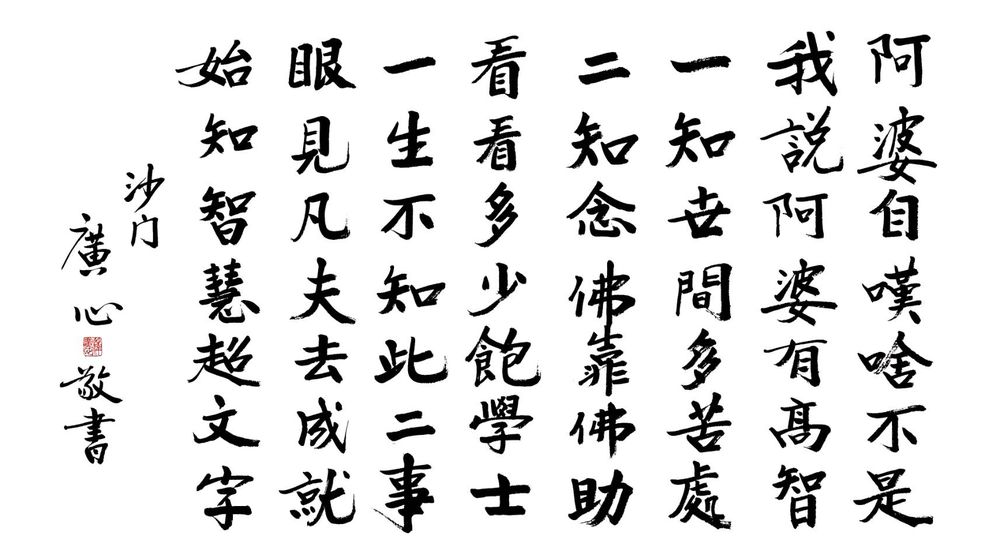 阿婆自嘆啥不是
我説阿婆有髙智
一知世間多苦處
二知念佛靠佛助
看看多少飽學士
一生不知此二事
眼見凡夫去成就
始知智慧超文字
沙门
廣心敬書